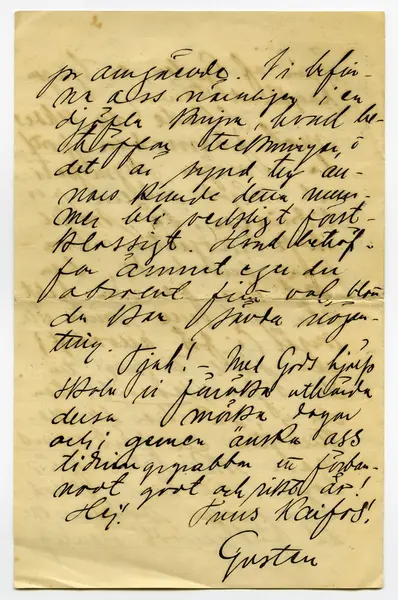 pr omgående. Vi befin-
na oss nämligen i en
djäfla knipa, hvad be-
träffar teckningar, o
det är synd ty an-
nars kunde detta num-
mer bli verkligt först-
klassigt. Hvad beträf-
far ämnet eger du
absolut fritt val, blott
du kan sända någon-
ting.
Tjah! – Med Guds hjälp
skola vi försöka uthärda
dessa mörka dagar
och i gemen önska oss
tidningsgrabbar ett förban-
nadt godt och rikt år!
Hej! Tuus Kaifas!
Gösten